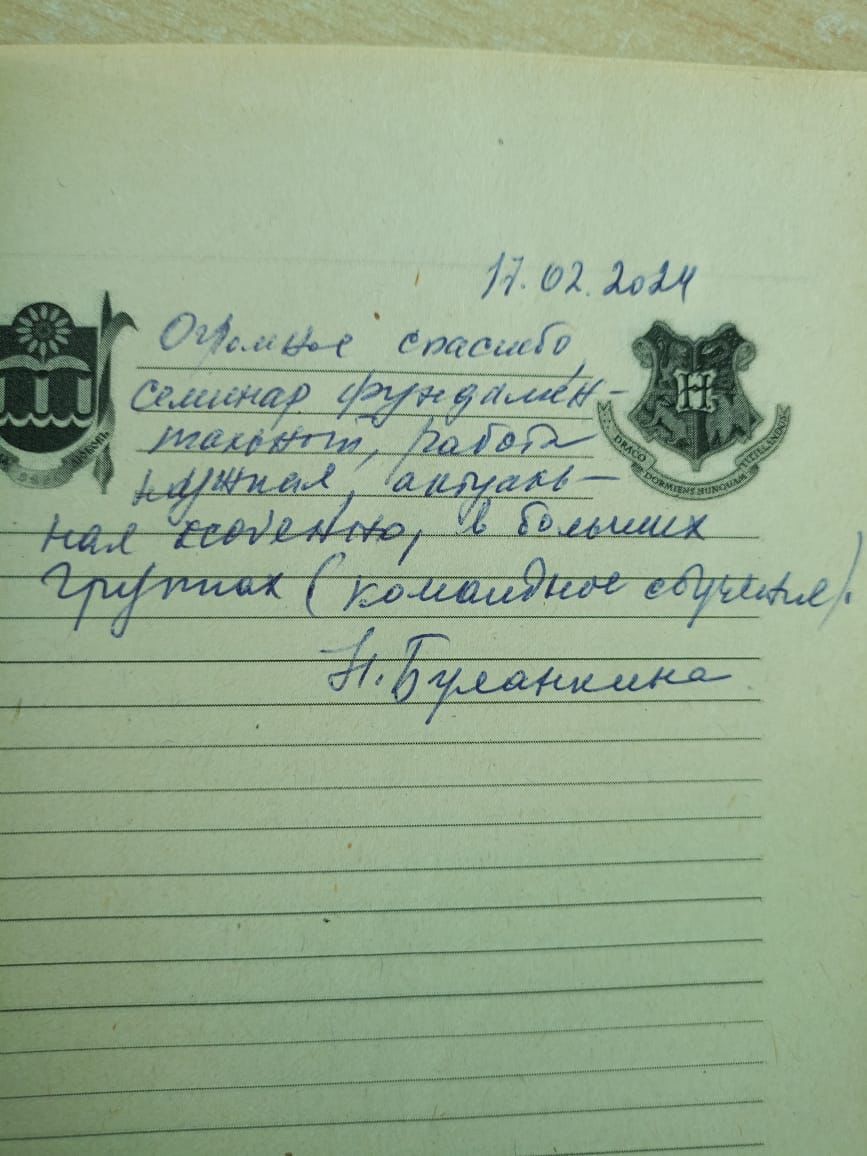 17.02.2024
Огромное спасибо,
семинар фундамен-
тальный, работа
нужная, актуаль-
ная особенно, в больших
группах (командное обучение).
Н. Буланкина
H
DRACO DORMIENS NUNQUAM TITILLANDUS